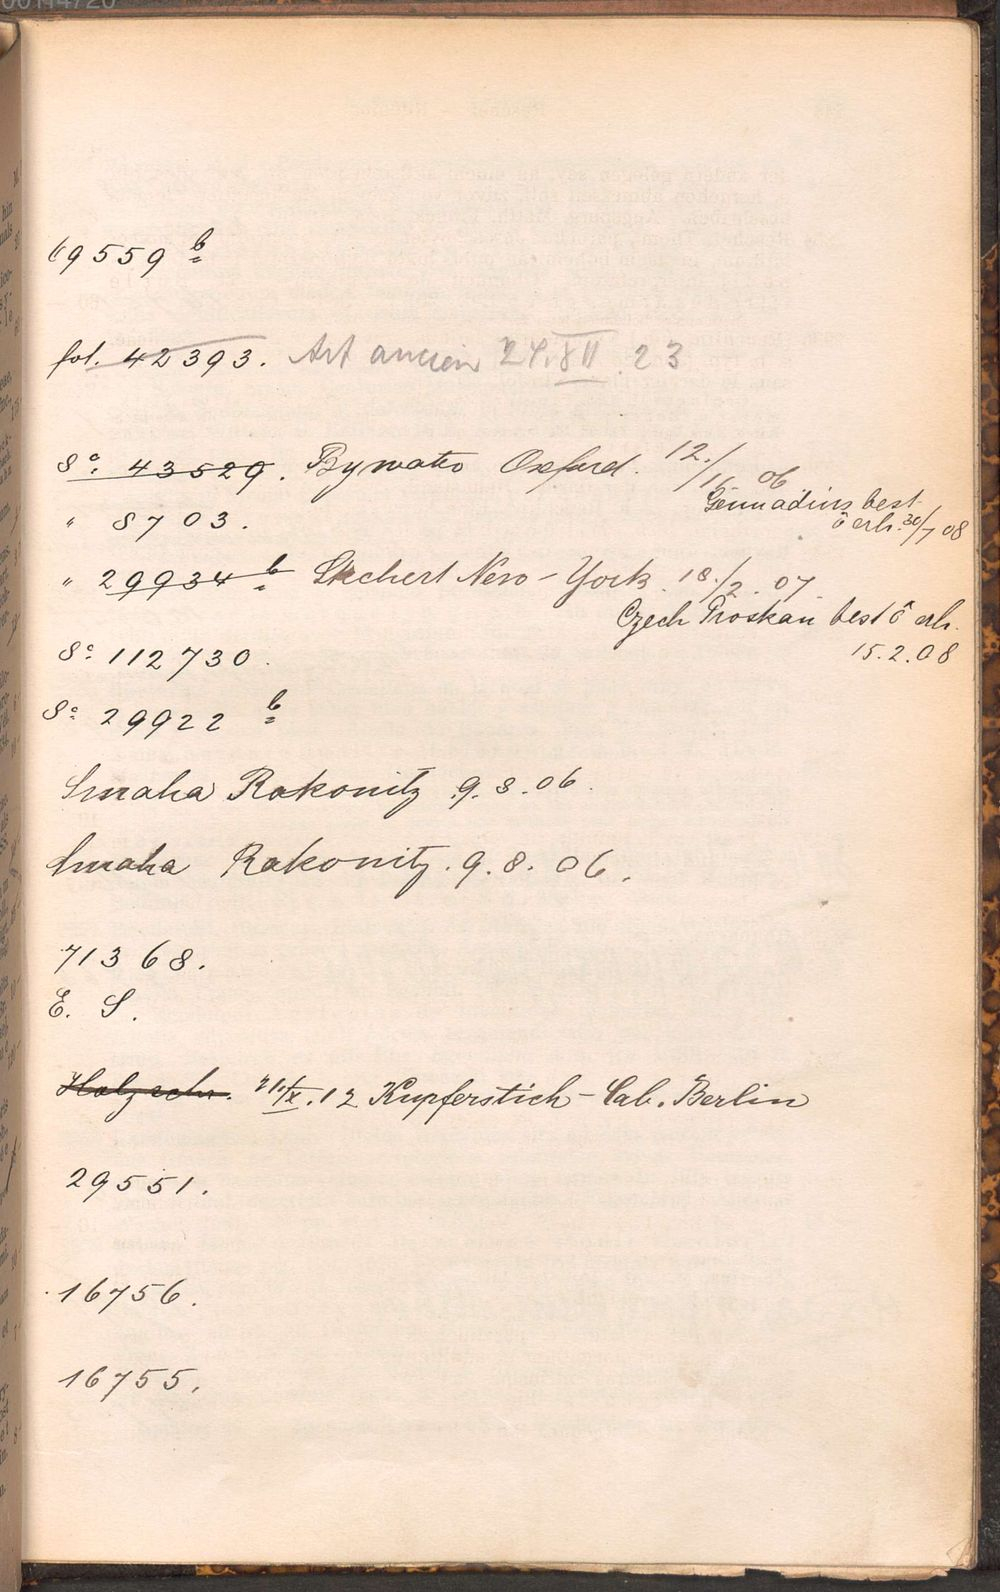 69559 b
fol. 42393. Art ancien 24. XII. 23
8°. 43529. Bywater Oxford. 12./11. 06
Gennadius best.
ô erh. 30/7 08
" 8703.
" 29934 b Stechert New-York. 18./2. 07.
Czech Proskau best ô erh.
8° 112730.
15.2.08
8° 29922 b
Rakonitz 9. 8. 06.
Rakonitz. 9. 8. 06.
71368.
E. S.
Holzschn. 21./X. 12 Kupferstich-Cab. Berlin
29551.
16756.
16755.